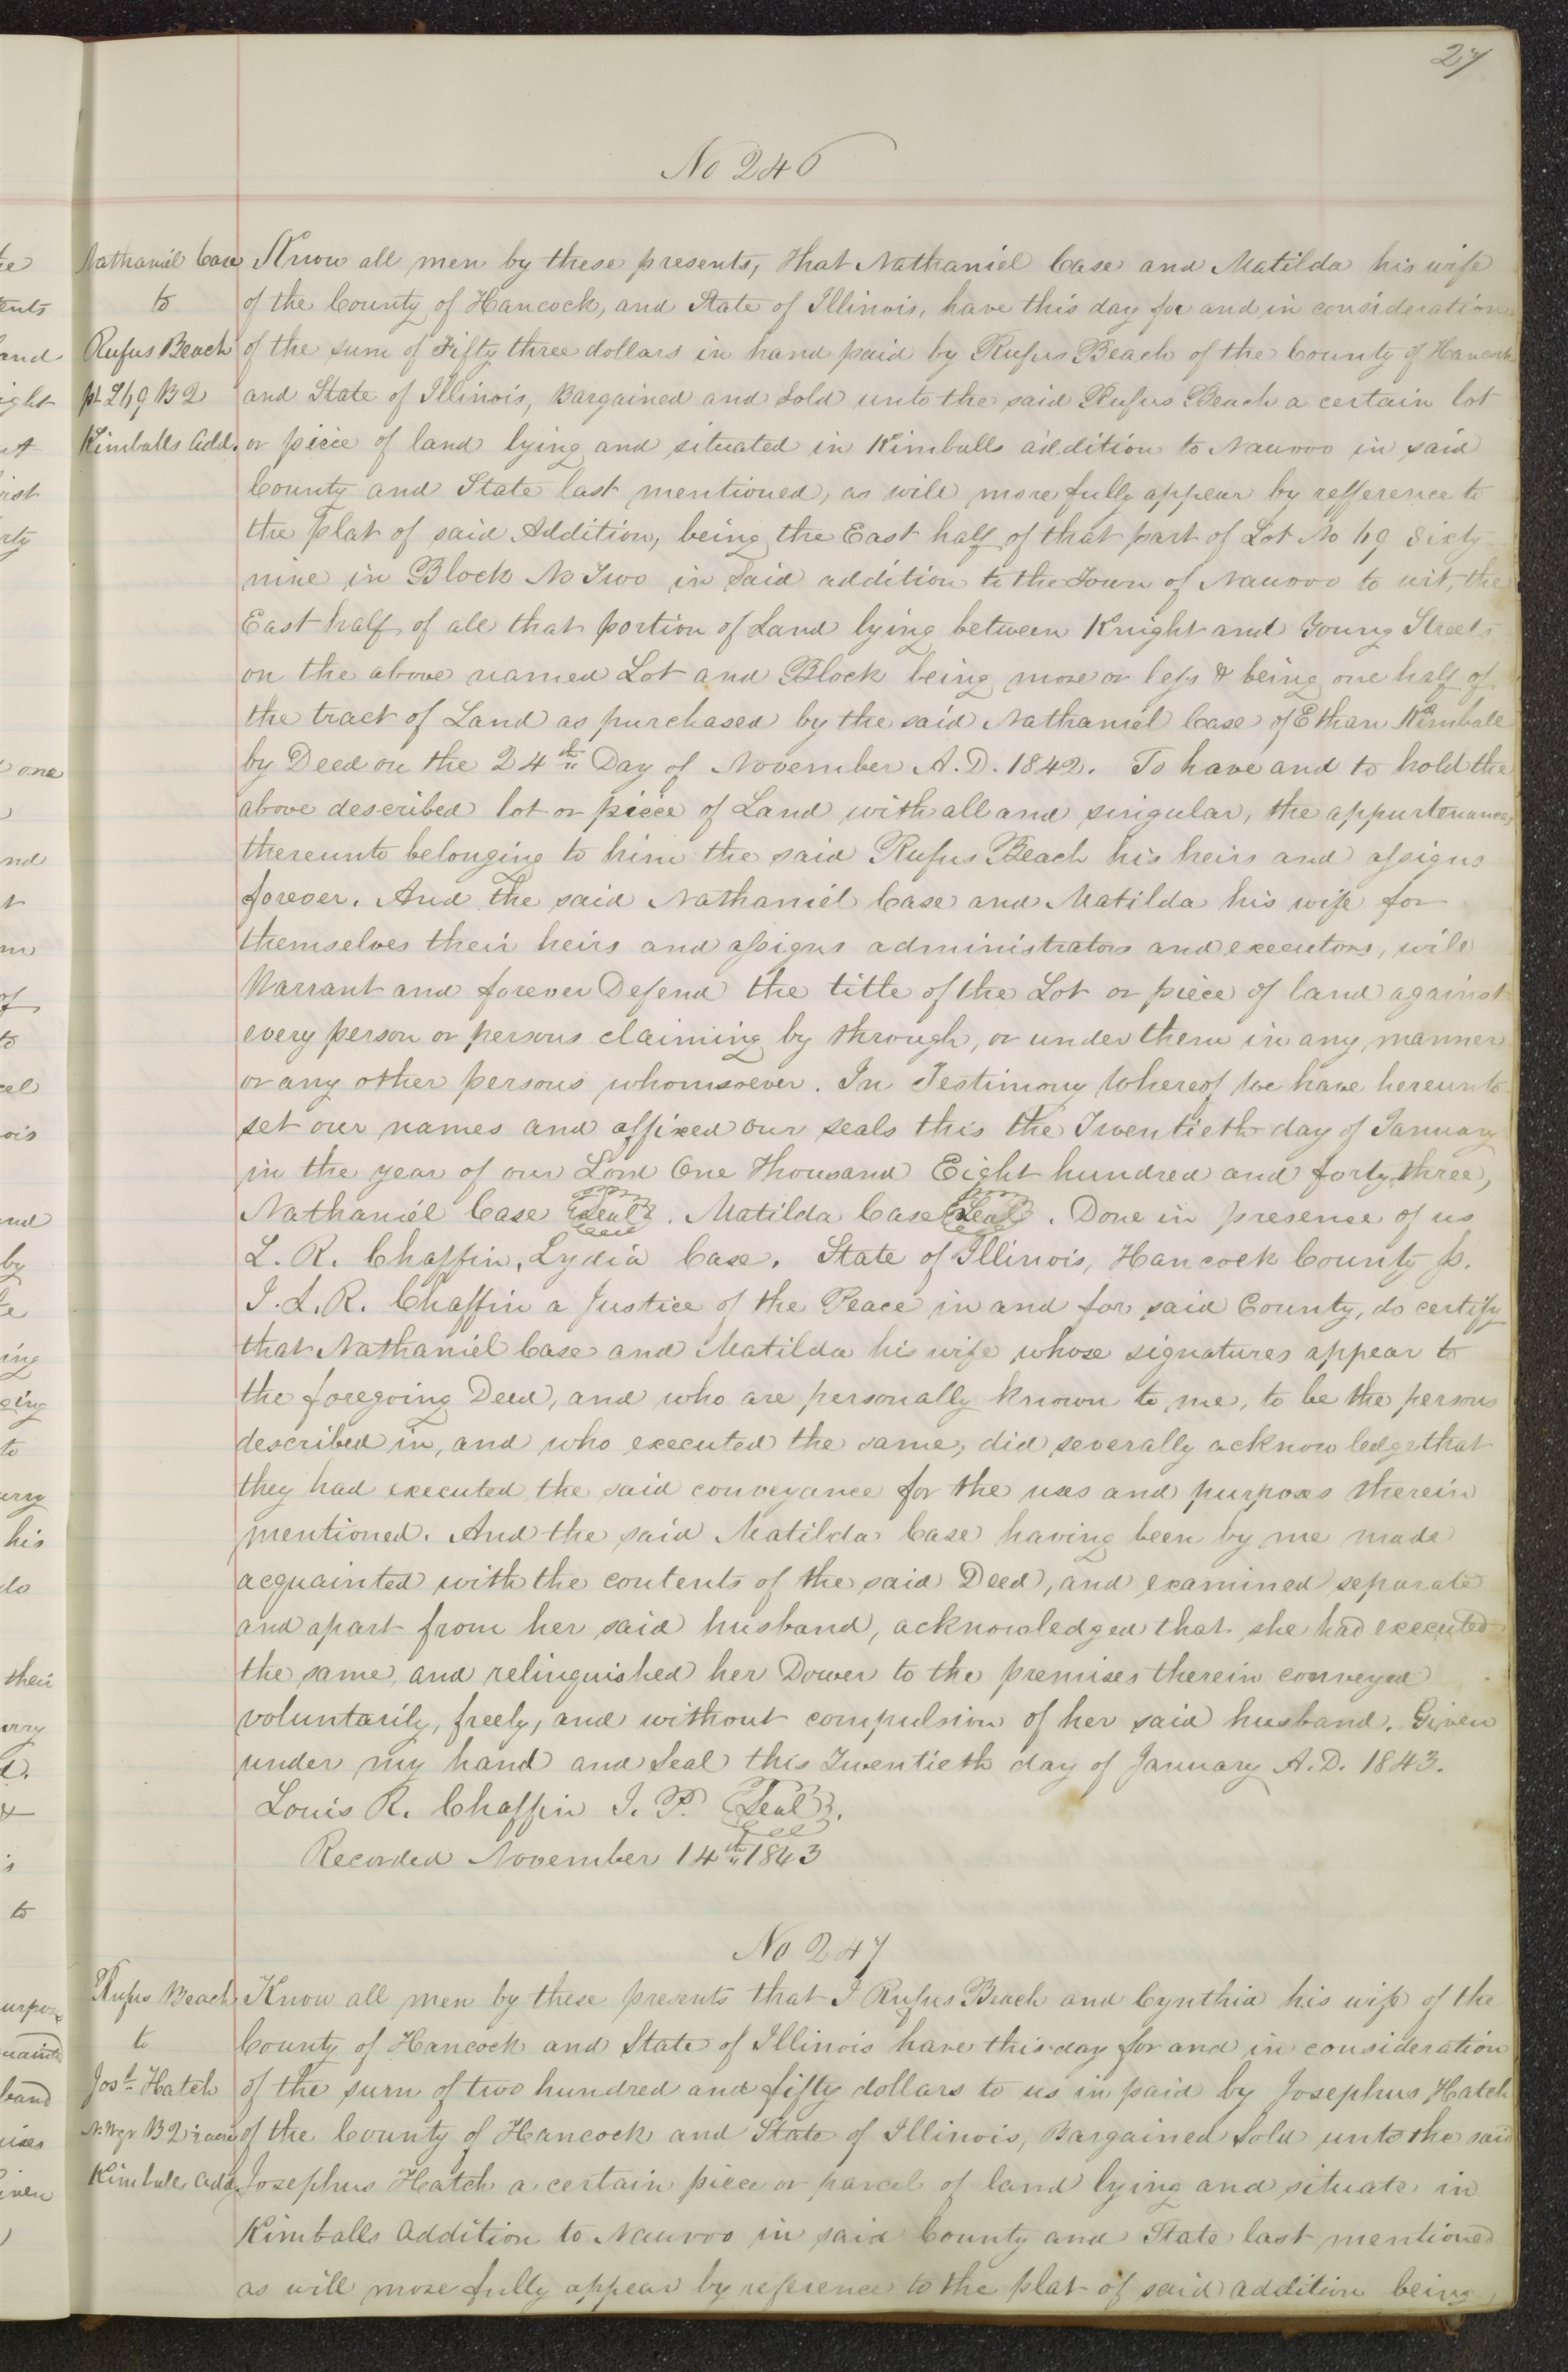 27
No 246
Nathaniel Case
to
Rufus Beach
pt L69 B2
Kimballs Add.
Know all men by these presents, that Nathaniel Case and Matilda his wife
of the County of Hancock, and State of Illinois, have this day for and in consideration
of the sum of Fifty three dollars in hand paid by Rufus Beach of the County of Hancock
and State of Illinois, Bargained and Sold unto the said Rufus Beach a certain lot
or piece of land lying and situated in Kimballs addition to Nauvoo in said
County and State last mentioned, as will more fully appear by refference to
the Plat of said Addition, being the East half of that part of Lot No 69 Sixty
nine in Block No Two in said addition to the Town of Nauvoo to wit, the
East half of all that portion of Land lying between Knight and Young Streets
on the above named Lot and Block being more or less & being one half of
the tract of Land as purchased by the said Nathaniel Case of Ethan Kimball
by Deed on the 24th Day of November A.D. 1842. To have and to hold the
above described lot or piece of Land with all and singular, the appurtenances
thereunto belonging to him the said Rufus Beach his heirs and assigns
forever. And the said Nathaniel Case and Matilda his wife for
themselves their heirs and assigns administrators and executors, will
Warrant and forever Defend the title of the Lot or piece of land against
every person or persons claiming by through, or under them in any manner
or any other persons whomsoever. In Testimony Whereof We have hereunto
set our names and affixed our seals this the Twentieth day of January
in the year of our Lord One Thousand Eight hundred and forty three,
Nathaniel Case Seal. Matilda Case Seal. Done in presence of us
L. R. Chaffin, Lydia Case. State of Illinois, Hancock County ss.
I. L. R. Chaffin a Justice of the Peace in and for said County, do certify
that Nathaniel Case and Matilda his wife whose signatures appear to
the foregoing Deed, and who are personally known to me, to be the persons
described in, and who executed the same, did severally acknowledge that
they had executed the said conveyance for the uses and purposes therein
mentioned. And the said Matilda Case having been by me made
acquainted with the contents of the said Deed, and examined separate
and apart from her said husband, acknowledged that she had executed
the same, and relinquished her Dower to the premises therein conveyed
voluntarily, freely, and without compulsion of her said husband. Given
under my hand and Seal this Twentieth day of January A.D. 1843.
Louis R. Chaffin J. P. Seal.
Recorded November 14th 1843
No 247
Rufus Beach
to
Josh Hatch
B2 1/2 acre
Kimballs Add.
Know all men by these presents that I Rufus Beach and Cynthia his wife of the
County of Hancock and State of Illinois have this day for and in consideration
of the sum of two hundred and fifty dollars to us in paid by Josephus Hatch
of the County of Hancock and State of Illinois, Bargained Sold unto the said
Josephus Hatch a certain piece or parcel of land lying and situate in
Kimballs Addition to Nauvoo in said County and State last mentioned
as will more fully appear by reference to the plat of said addition being